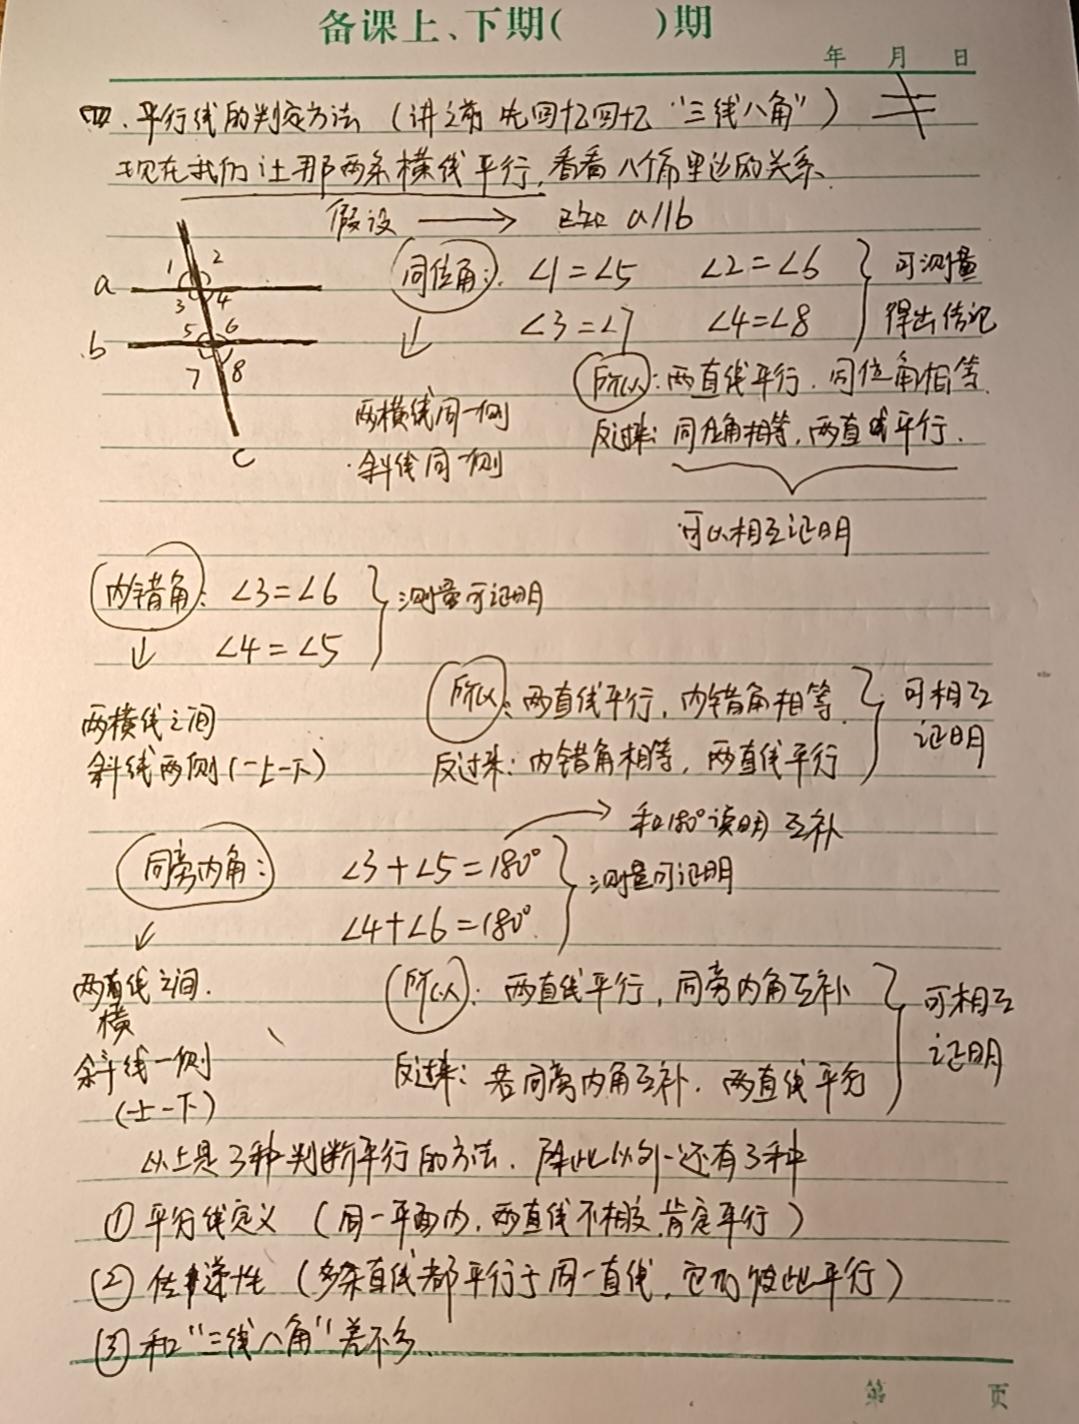 备课上、下期(　　)期
年　月　日
四、平行线的判定方法 (讲之前先回忆回忆“三线八角”)
现在我们让那两条横线平行,看看八个角里边的关系.
假设 → 已知 a//b
a
b
c
1 2
3 4
5 6
7 8
同位角: ∠1=∠5 ∠2=∠6
∠3=∠7 ∠4=∠8
可测量
得出结论
↓
两横线同一侧
斜线同一侧
所以:两直线平行.同位角相等.
反过来:同位角相等,两直线平行.
可以相互证明
内错角: ∠3=∠6
∠4=∠5
测量可证明
↓
两横线之间
斜线两侧(一上一下)
所以:两直线平行,内错角相等.
反过来:内错角相等,两直线平行
可相互
证明
同旁内角: ∠3+∠5=180°
∠4+∠6=180°.
→ 和180°说明互补
测量可证明
↓
两直线之间.
横
斜线一侧
(一上一下)
所以: 两直线平行,同旁内角互补
反过来:若同旁内角互补.两直线平行
可相互
证明
以上是3种判断平行的方法.除此以外还有3种
① 平行线定义 (同一平面内,两直线不相交.肯定平行)
② 传递性 (多条直线都平行于同一直线,它们彼此平行)
③ 和“三线八角”差不多.
第　页